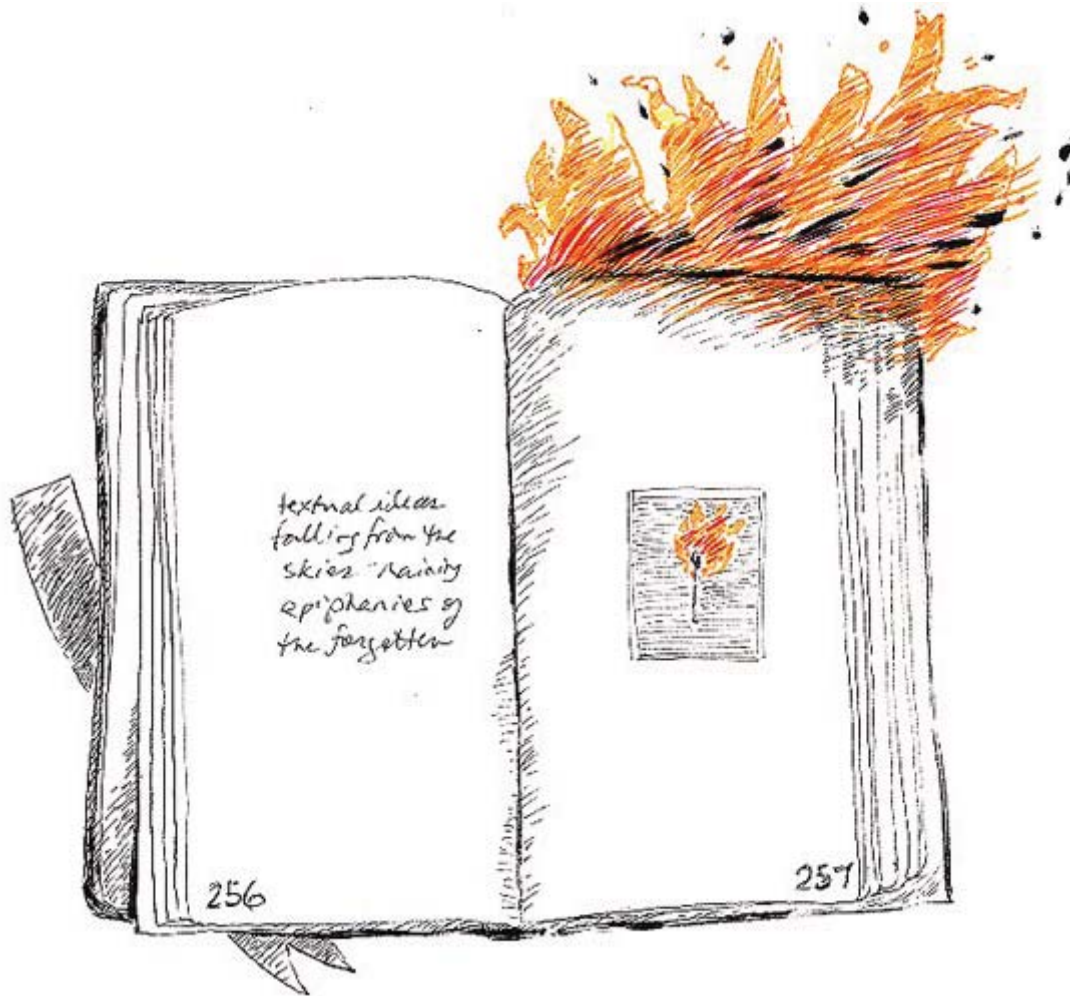 textual ideas
falling from the
skies raining
epiphanies of
the forgotten
256
257